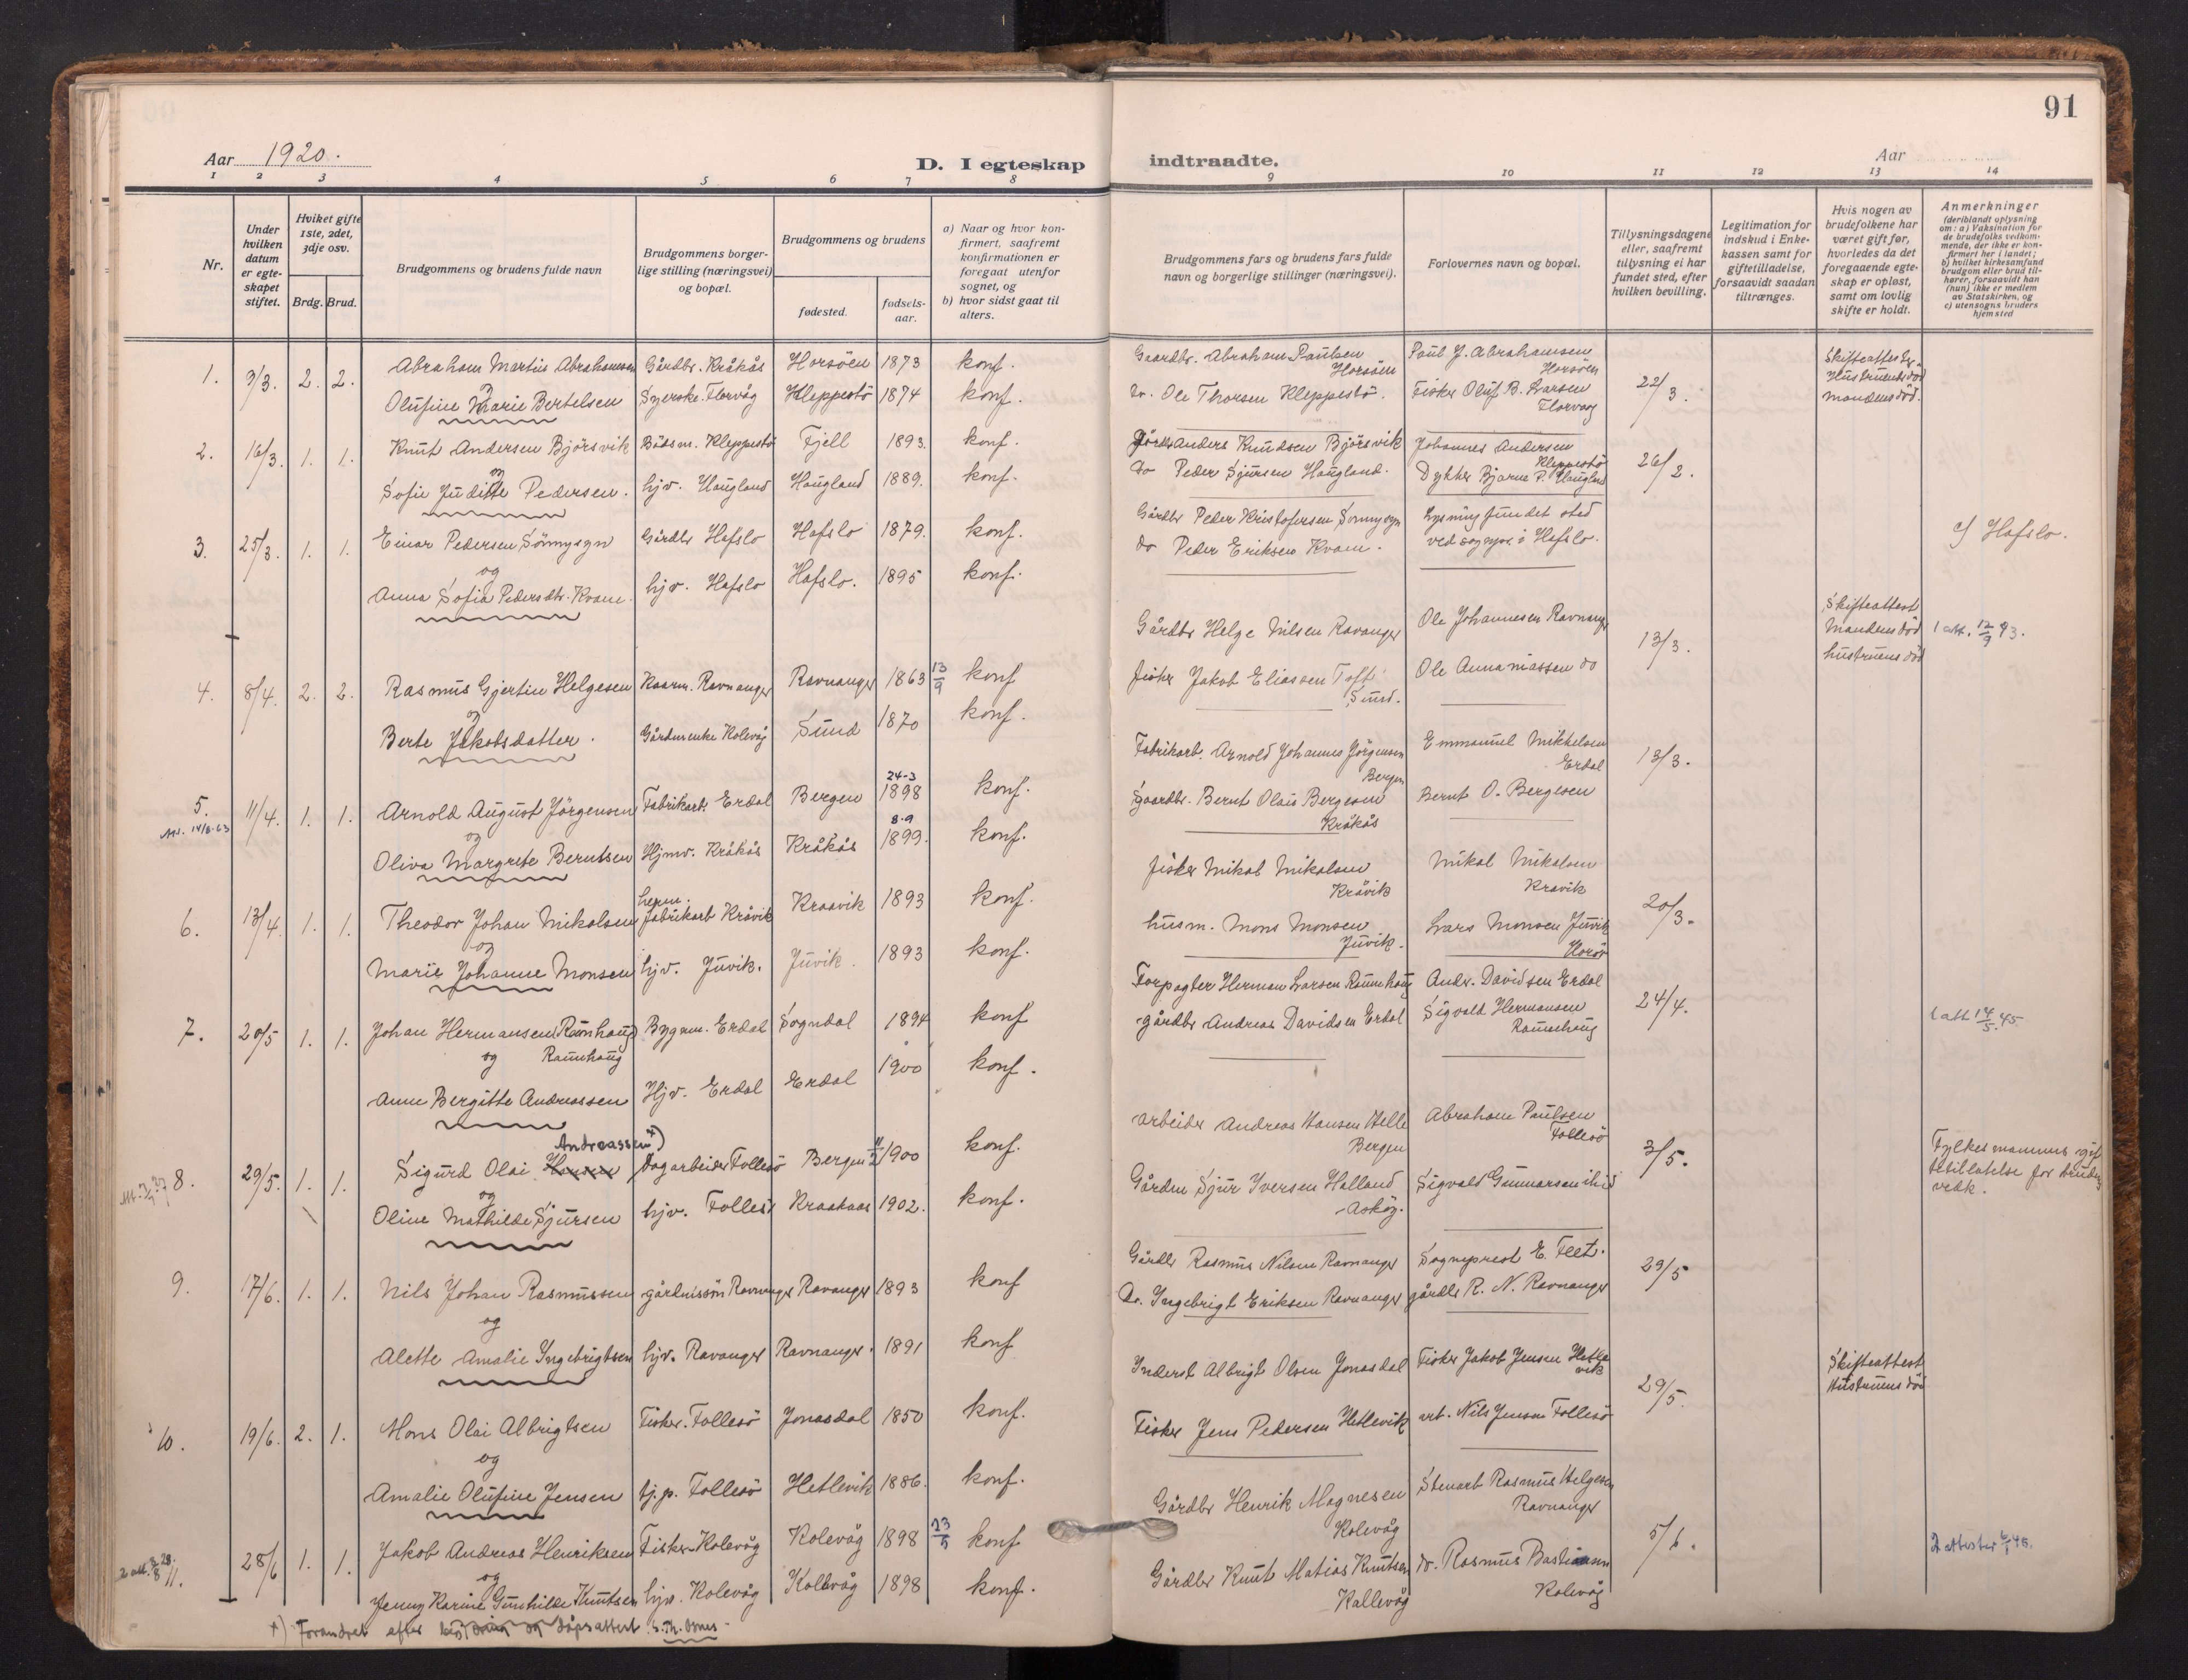 91
Aar 1920.
D. I egteskap indtraadte.
Aar
1 2 3 4 5 6 7 8 9 10 11 12 13 14
Nr.
Under hvilken datum er egteskapet stiftet.
Hviket gifte 1ste, 2det, 3dje osv.
Brdg. Brud.
Brudgommens og brudens fulde navn
Brudgommens borgerlige stilling (næringsvei) og bopæl.
Brudgommens og brudens
fødested.
fødselsaar.
a) Naar og hvor konfirmert, saafremt konfirmationen er foregaat utenfor sognet, og
b) hvor sidst gaat til alters.
Brudgommens fars og brudens fars fulde navn og borgerlige stillinger (næringsvei).
Forlovernes navn og bopæl.
Tillysningsdagene eller, saafremt tillysning ei har fundet sted, efter hvilken bevilling.
Legitimation for indskud i Enkekassen samt for giftetilladelse, forsaavidt saadan tiltrænges.
Hvis nogen av brudefolkene har været gift før, hvorledes da det foregaaende egteskap er opløst, samt om lovlig skifte er holdt.
Anmerkninger (deriblandt oplysning om: a) Vaksination for de brudefolks vedkommende, der ikke er konfirmert her i landet; b) hvilket kirkesamfund brudgom eller brud tilhører, forsaavidt han (hun) ikke er medlem av Statskirken, og c) utensogns bruders hjemsted
1. 9/3. 2. 2. Abraham Martin Abrahamsen Gårdbr. Kråkås Horsöen 1873 konf. Gaardbr. Abraham Paulsen Horsöen Paul J. Abrahamsen Horsöen 22/3. Skifteattester. Hustruens död mandens död.
og
Olufine Marie Bertelsen Syerske. Florvåg Kleppestö 1874 konf. do. Ole Thorsen Kleppestö. Fisker Oluf B. Larsen Florvaag
2. 16/3. 1. 1. Knut Andersen Björsvik Bödsm. Kleppestö Fjell 1893. konf. Anders Knudsen Björsvik Johannes Andersen Kleppestö 26/2.
og
Sofie Juditte Pedersen. hjv. Haugland Haugland 1889. konf. do Peder Sjursen Haugland. Dykker Bjarne P. Haugland
3. 25/3. 1. 1. Einar Pedersen Sönnysgn Gårdbr Hafslo Hafslo 1879. konf. Gårdbr Peder Kristofersen Sonnysgn Lysning fundet sted c) Hafslo.
og
Anna Sofia Pedersdtr. Kvam. hjv. Hafslo Hafslo. 1895 konf. do Peder Eriksen Kvam. ved sognepr. i Hafslo.
4. 8/4. 2. 2. Rasmus Gjertin Helgesen Kaarm. Ravnanger Ravnanger 1863 13/9 konf Gårdbr Helge Nilsen Ravanger Ole Johannesen Ravnang 13/3. Skifteattest Mandens död hustruens död 1 att. 12/9 43.
og
Berte Jakobsdatter. Gårdmenke Kolevåg Sund 1870 konf. fisker Jakob Eliassen Toft Sund. Ole Annaniassen do
5. 11/4. 1. 1. Arnold August Jörgensen Fabrikarb Erdal Bergen 24-3 1898 konf. Fabrikarb. Arnold Johannes Jörgensen Bergen Emmanuel Mikkelsen Erdal 13/3.
og
Oliva Margrete Berntsen Hjmv. Kråkås Kråkås 8-9 1899. konf. Gaardbr. Bernt Olais Bergesen Kråkås Bernt O. Bergesen
6. 13/4. 1. 1. Theodor Johan Mikalsen fabrikarb Kråvik Kraavik 1893 konf. fisker Mikal Mikalsen Kråvik Mikal Mikalsen Kravik 20/3.
og
Marie Johanne Monsen hjv. Juvik. Juvik. 1893 konf. husm. Mons Monsen Juvik. Lars Monsen Juvik Horsö
7. 20/5 1. 1. Johan Hermansen Raunhaug Bygnm. Erdal Sogndal 1894 konf Forpagter Herman Larsen Raunhaug Andr. Davidsen Erdal 24/4. 1 att 14/5.45.
og Raunhaug
Anne Bergitte Andreassen Hjv. Erdal Erdal 1900 konf. gårdbr Andreas Davidsen Erdal Sigvald Hermansen Raunehaug
Andreassen x)
8. 29/5. 1. 1. Sigurd Olai Hansen Dagarbeider Follesö Bergen 1900 konf. Arbeider Andreas Hansen Helle Bergen Abraham Paulsen Follesö 3/5. Fylkesmannens giftetillatelse for bruden vedk.
og
Oline Mathilde Sjursen hjv. Follesö Kraakaas 1902. konf. Gårdm Sjur Iversen Halland Asköy. Sigvald Gunnarsen ibid
9. 17/6. 1. 1. Nils Johan Rasmussen gårdmssön Ravnanger Ravanger 1893 konf Gårdbr Rasmus Nilsen Ravnanger Sogneprest E. Feet. 29/5
og
Alette Amalie Ingebrigtsen hjv. Ravanger Ravnanger. 1891 konf Do. Ingebrigt Eriksen Ravnanger gårdbr R. N. Ravnanger
10. 19/6. 2. 1. Mons Olai Albrigtsen Fisker. Follesö Jonasdal 1850 konf. Inderst Albrigt Olsen Jonasdal Fisker Jakob Jensen Hetlevik 29/5. Skifteattest Hustruens död
og
Amalie Olufine Jensen hj.p. Follesö Hetlevik 1886. konf. Fisker Jens Pedersen Hetlevik arb. Nils Jensen Follesö
11. 28/6 1. 1. Jakob Andreas Henriksen Fisker Kolevåg Kolevåg 1898 konf Gårdbr Henrik Magnesen Kolevåg Stenarb Rasmus Helgesen Ravnanger 5/6. 2 attester
og
Jenny Karine Gunhilde Knutsen hjv. Kolevåg Kollevåg 1898 konf. Gårdbr Knut Matias Knutsen Kallevåg do. Rasmus Bastiansen Kolevåg
x) Forandret efter dåpsattest.